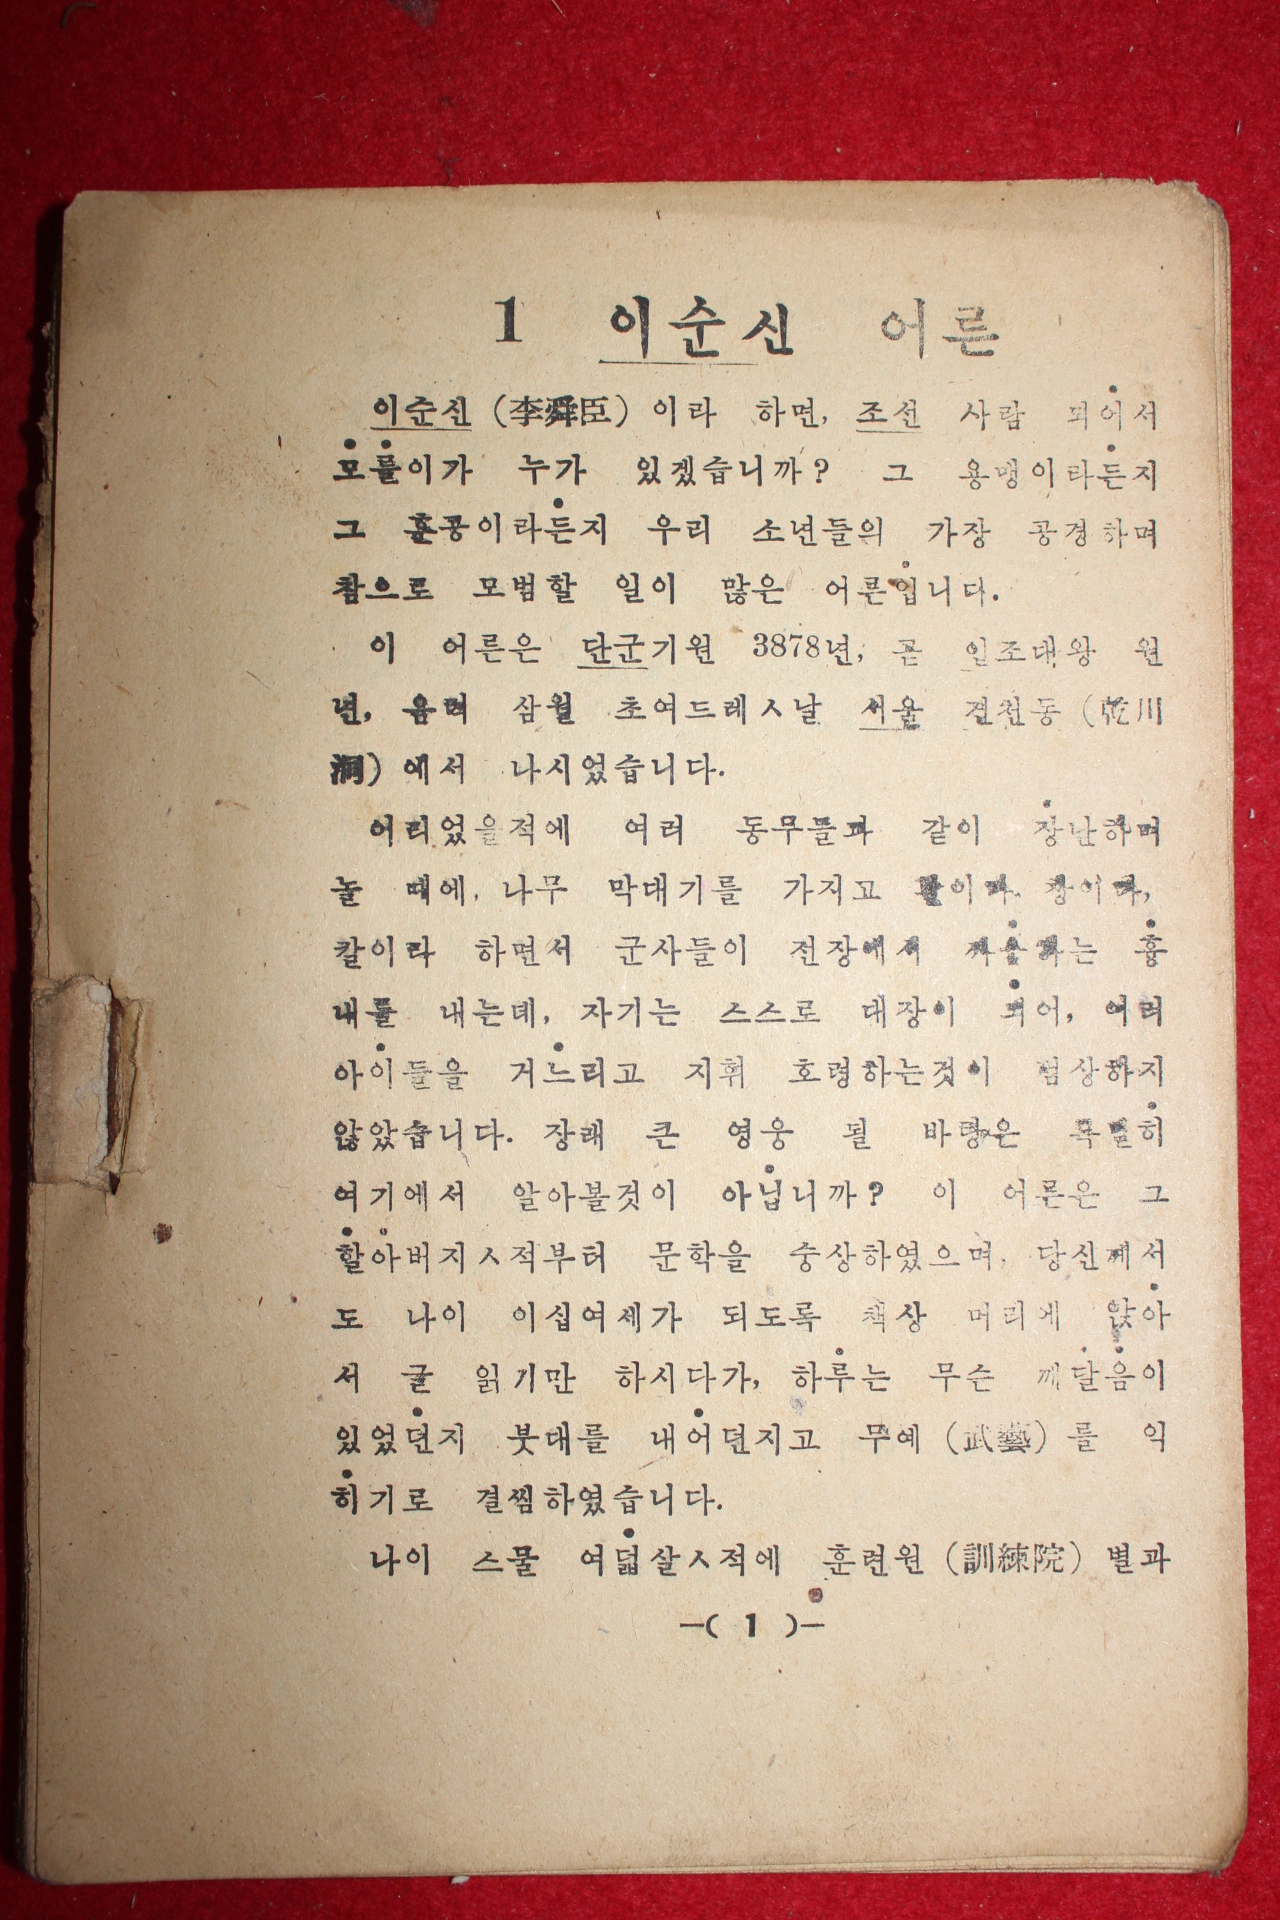 1 이순신 어른
이순신 (李舜臣) 이라 하면, 조선 사람 되어서
모를이가 누가 있겠습니까? 그 용맹이라든지
그 훈공이라든지 우리 소년들의 가장 공경하며
참으로 모범할 일이 많은 어른입니다.
이 어른은 단군기원 3878년, 곧 인조대왕 원
년, 음력 삼월 초여드레ㅅ날 서울 건천동 (乾川
洞) 에서 나시었습니다.
어리었을적에 여러 동무들과 같이 장난하며
놀 때에, 나무 막대기를 가지고 활이라, 창이라,
칼이라 하면서 군사들이 전장에서 싸움하는 흉
내를 내는데, 자기는 스스로 대장이 되어, 여러
아이들을 거느리고 지휘 호령하는것이 범상하지
않았습니다. 장래 큰 영웅 될 바탕은 특별히
여기에서 알아볼것이 아닙니까? 이 어른은 그
할아버지ㅅ적부터 문학을 숭상하였으며, 당신께서
도 나이 이십여세가 되도록 책상 머리게 앉아
서 글 읽기만 하시다가, 하루는 무슨 깨달음이
있었던지 붓대를 내어던지고 무예 (武藝) 를 익
히기로 결씸하였습니다.
나이 스물 여덟살ㅅ적에 훈련원 (訓練院) 별과
—( 1 )—